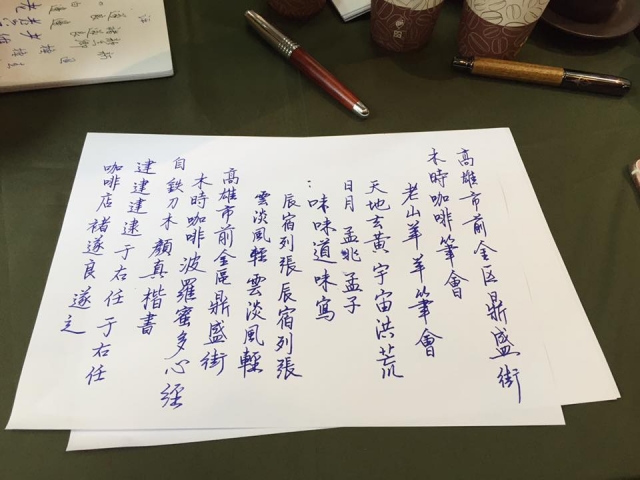 高雄市前金区鼎盛街
木時咖啡筆會
老山羊羊筆會
天地玄黃宇宙洪荒
日月 孟兆 孟子
：味味道味寫
辰宿列張辰宿列張
雲淡風軽雲淡風輕
高雄市前金區鼎盛街
木時咖啡波羅蜜多心經
自鉄刀木顏真楷書
建建建逮于右任于右任
咖啡店褚遂良遂之